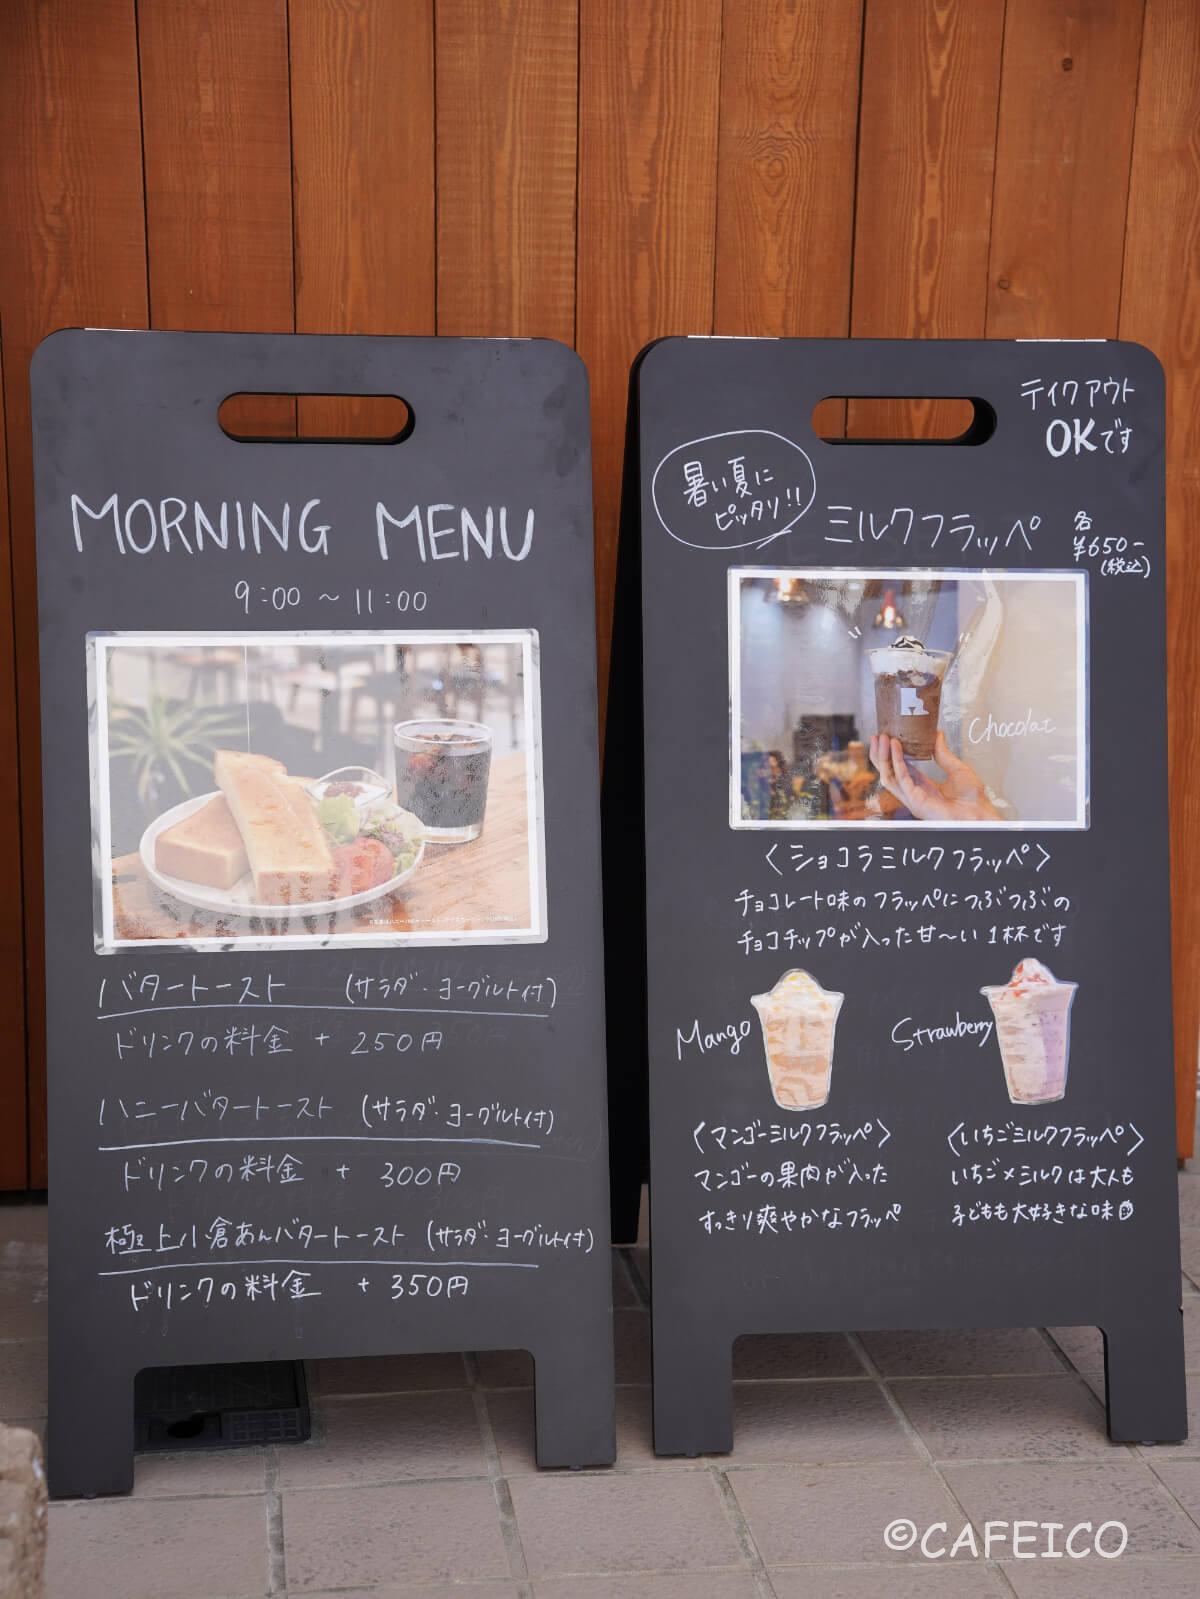 MORNING MENU
9:00 ~ 11:00
バタートースト (サラダ・ヨーグルト付)
ドリンクの料金 + 250円
ハニーバタートースト (サラダ・ヨーグルト付)
ドリンクの料金 + 300円
極上小倉あんバタートースト (サラダ・ヨーグルト付)
ドリンクの料金 + 350円
テイクアウト
OKです
暑い夏に
ピッタリ!!
ミルクフラッペ
各
¥650-
(税込)
Chocolat
〈ショコラミルクフラッペ〉
チョコレート味のフラッペにつぶつぶの
チョコチップが入った甘〜い1杯です
Mango
〈マンゴーミルクフラッペ〉
マンゴーの果肉が入った
すっきり爽やかなフラッペ
Strawberry
〈いちごミルクフラッペ〉
いちご×ミルクは大人も
子どもも大好きな味
©CAFEICO